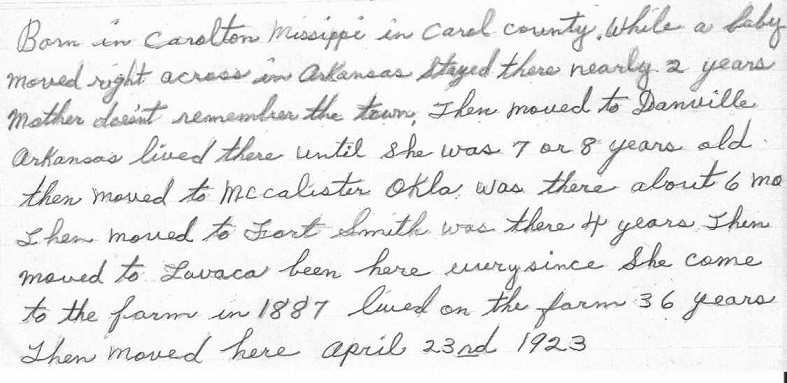 Born in Carolton Missippi in Carol county. While a baby
moved right across in Arkansas Stayed there nearly 2 years
Mother doesn't remember the town. Then moved to Danville
Arkansas lived there until she was 7 or 8 years old.
then moved to Mccalister Okla. was there about 6 mo
Then moved to Fort Smith was there 4 years Then
moved to Lavaca been here everysince She come
to the farm in 1887 lived on the farm 36 years
Then moved here April 23nd 1923